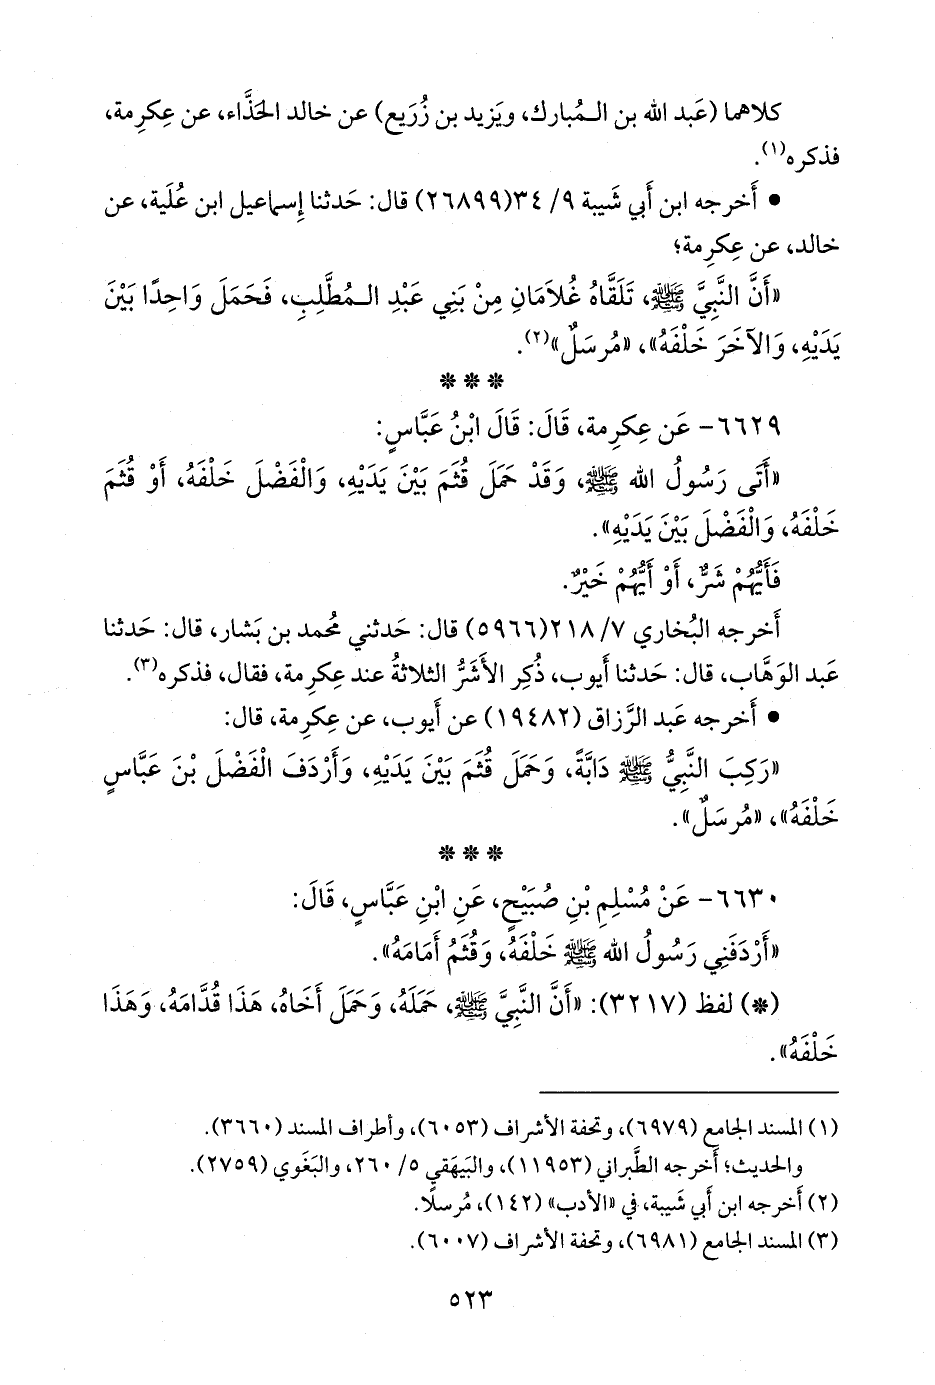 كلاهما (عَبد الله بن الـمُبارك، ويَزيد بن زُرَيع) عن خالد الحَذَّاء، عن عِكرِمة،
فذكره(١).
• أَخرجه ابن أَبي شَيبة ٩/ ٣٤(٢٦٨٩٩) قال: حَدثنا إِسماعيل ابن عُلَية، عن
خالد، عن عِكرِمة؛
«أَنَّ النَّبِيَّ ﷺ، تَلَقَّاهُ غُلَامَانِ مِنْ بَنِي عَبْدِ الـمُطَّلِبِ، فَحَمَلَ وَاحِدًا بَيْنَ
يَدَيْهِ، وَالآخَرَ خَلْفَهُ»، «مُرسَلٌ»(٢).
* * *
٦٦٢٩- عَن عِكرِمة، قَالَ: قَالَ ابْنُ عَبَّاسٍ:
«أَتَى رَسُولُ الله ﷺ، وَقَدْ حَمَلَ قُثَمَ بَيْنَ يَدَيْهِ، وَالْفَضْلَ خَلْفَهُ، أَوْ قُثَمَ
خَلْفَهُ، وَالْفَضْلَ بَيْنَ يَدَيْهِ».
فَأَيُّهُمْ شَرٌّ، أَوْ أَيُّهُمْ خَيْرٌ.
أَخرجه البُخاري ٧/ ٢١٨(٥٩٦٦) قال: حَدثني مُحمد بن بَشار، قال: حَدثنا
عَبد الوَهَّاب، قال: حَدثنا أَيوب، ذُكِر الأَشَرُّ الثلاثةُ عند عِكرِمة، فقال، فذكره(٣).
• أَخرجه عَبد الرَّزاق (١٩٤٨٢) عن أَيوب، عن عِكرِمة، قال:
«رَكِبَ النَّبِيُّ ﷺ دَابَّةً، وَحَمَلَ قُثَمَ بَيْنَ يَدَيْهِ، وَأَرْدَفَ الْفَضْلَ بْنَ عَبَّاسٍ
خَلْفَهُ»، «مُرسَلٌ».
* * *
٦٦٣٠- عَنْ مُسْلِمِ بْنِ صُبَيْحٍ، عَنِ ابْنِ عَبَّاسٍ، قَالَ:
«أَرْدَفَنِي رَسُولُ الله ﷺ خَلْفَهُ، وَقُثَمُ أَمَامَهُ».
(*) لفظ (٣٢١٧): «أَنَّ النَّبِيَّ ﷺ، حَمَلَهُ، وَحَمَلَ أَخَاهُ، هَذَا قُدَّامَهُ، وَهَذَا
خَلْفَهُ».
(١) المسند الجامع (٦٩٧٩)، وتحفة الأشراف (٦٠٥٣)، وأطراف المسند (٣٦٦٠).
والحديث؛ أَخرجه الطَّبراني (١١٩٥٣)، والبَيهَقي ٥/ ٢٦٠، والبَغَوي (٢٧٥٩).
(٢) أَخرجه ابن أَبي شَيبة، في «الأدب» (١٤٢)، مُرسلًا.
(٣) المسند الجامع (٦٩٨١)، وتحفة الأشراف (٦٠٠٧).
٥٢٣